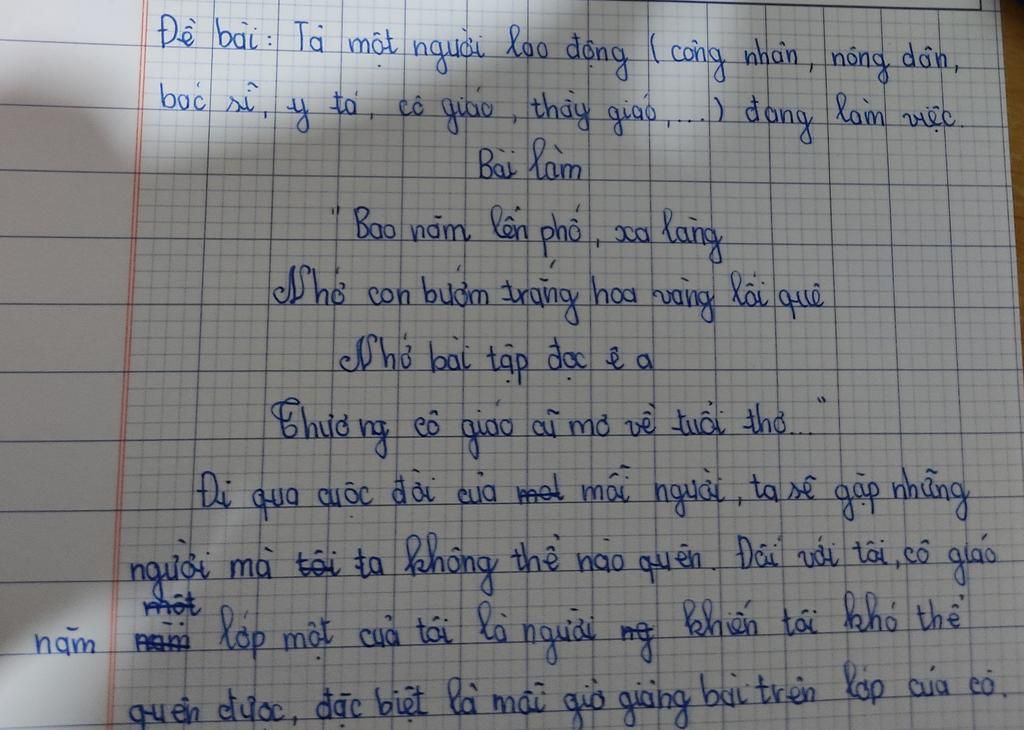 Đề bài: Tả một người lao động (công nhân, nông dân,
bác sĩ, y tá, cô giáo, thầy giáo,...) đang làm việc.
Bài làm
"Bao năm lên phố, xa làng
Nhớ con bướm trắng hoa vàng lối quê
Nhớ bài tập đọc ê a
Thương cô giáo cũ mơ về tuổi thơ..."
Đi qua cuộc đời của mỗi người, ta sẽ gặp những
người mà ta không thể nào quên. Đối với tôi, cô giáo
năm lớp một của tôi là người khiến tôi khó thể
quên được, đặc biệt là mỗi giờ giảng bài trên lớp của cô.